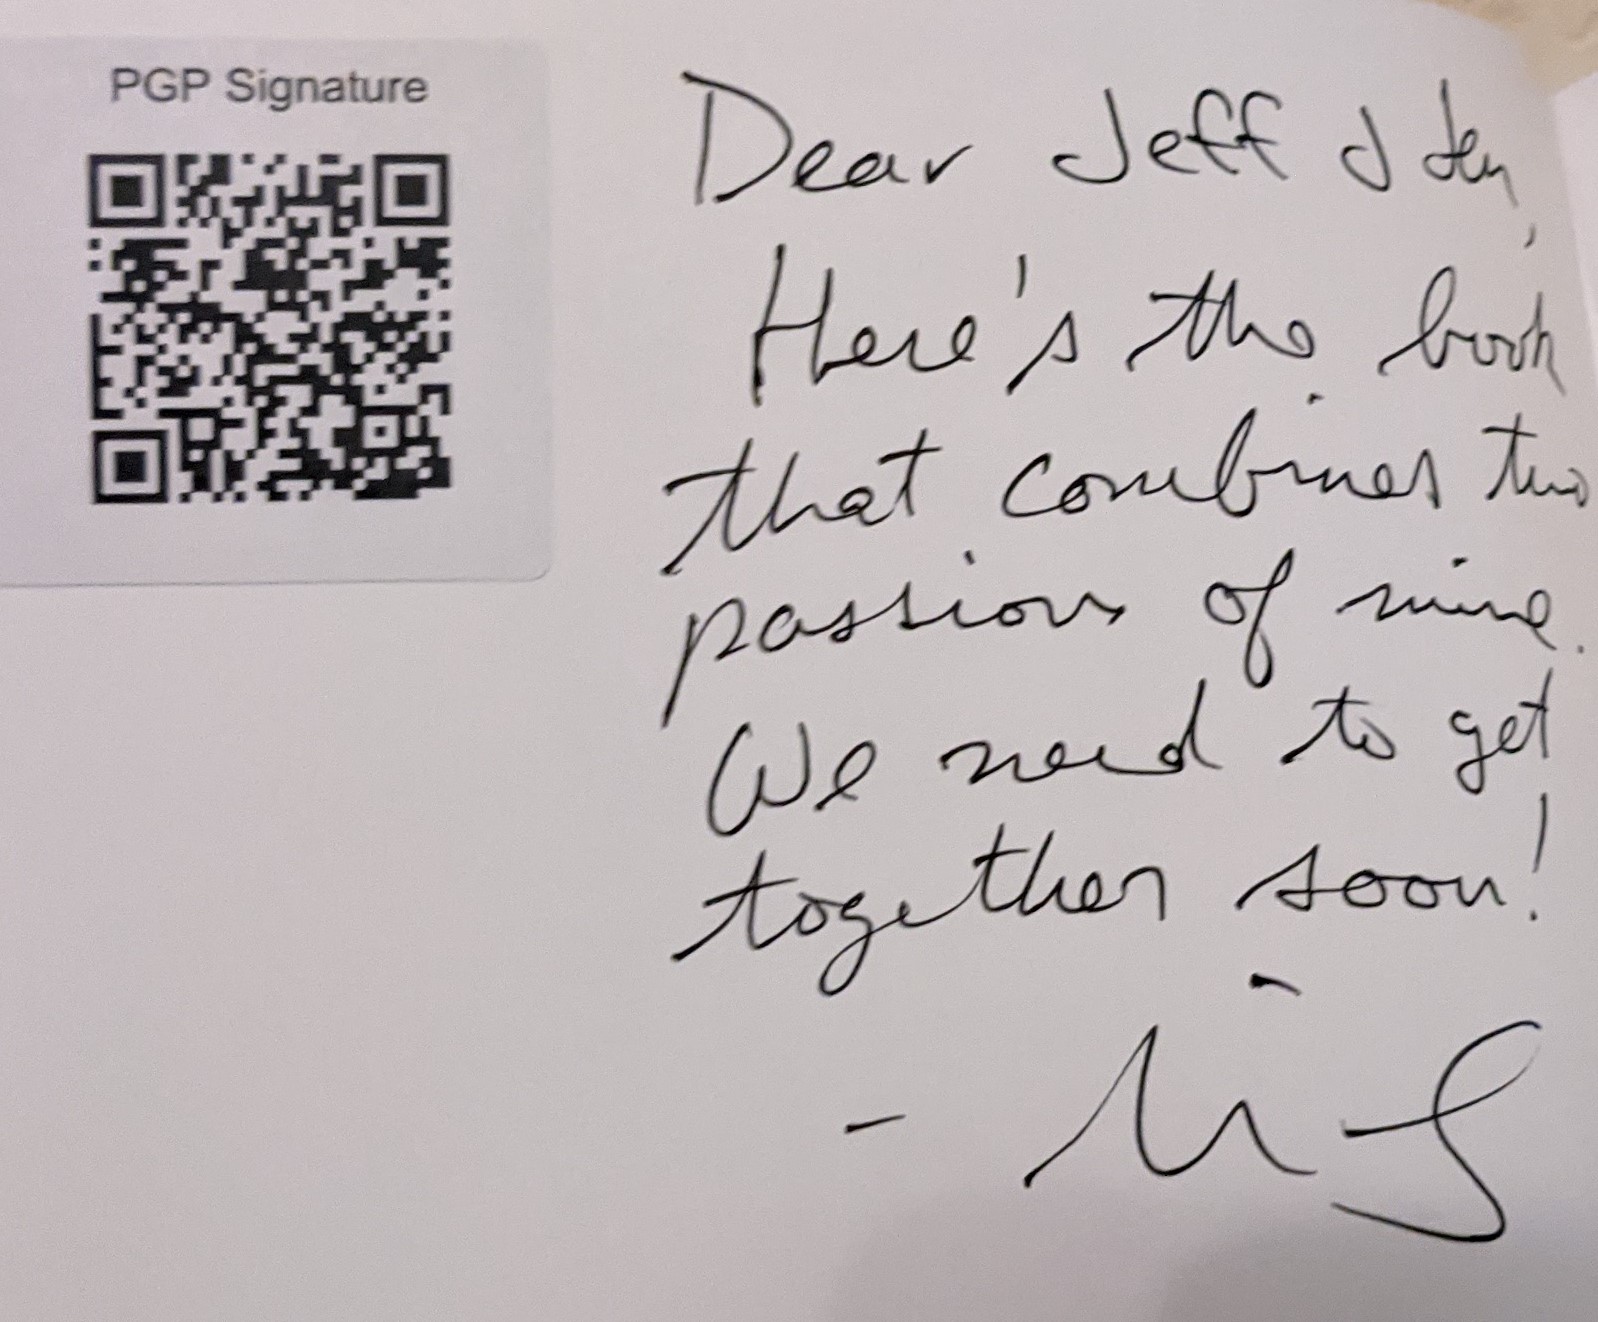 PGP Signature
Dear Jeff & Jen,
Here's the book
that combines two
passions of mine.
We need to get
together soon!
-